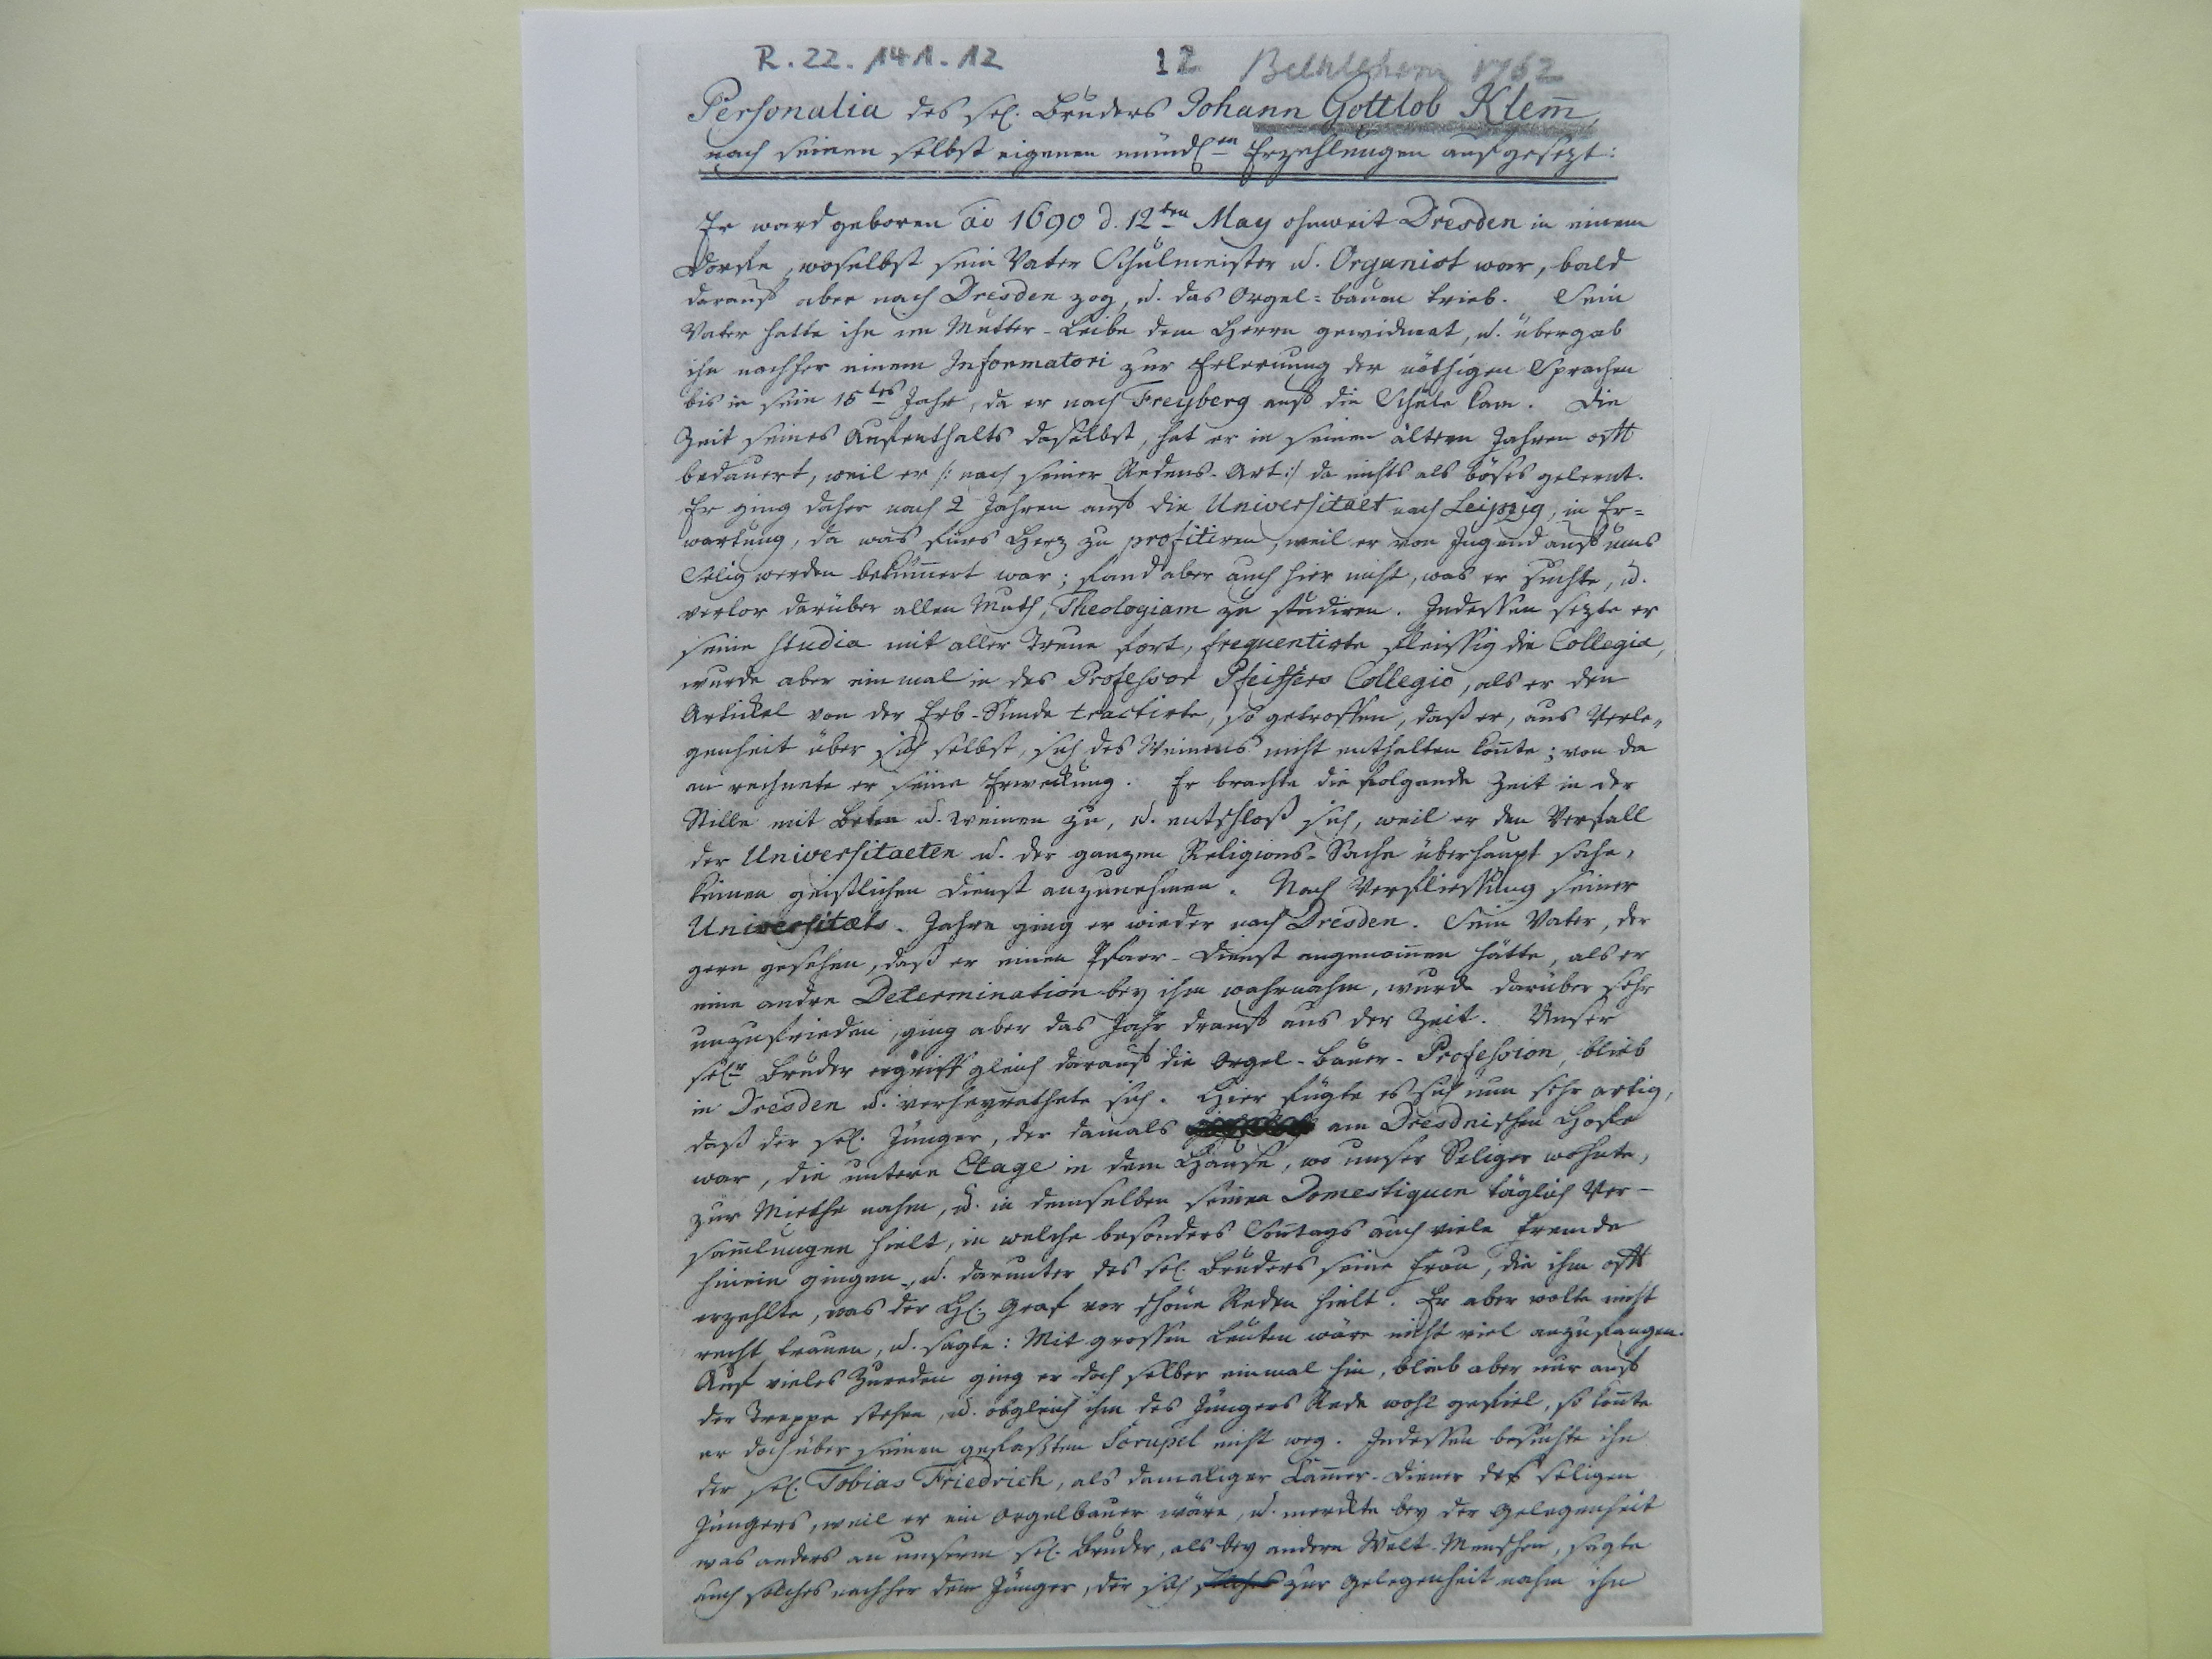 R. 22. 141. 12 12 Bethlehem 1762
Personalia des sel. Bruders Johann Gottlob Klem̄,
nach seinen selbst eigenen mündl.en Erzehlungen aufgesezt:
Er ward geboren ao 1690 d. 12ten May ohnweit Dresden in einem
Dorfe, woselbst sein Vater Schulmeister u. Organist war, bald
darauf aber nach Dresden zog, u. das Orgel=bauen trieb. Sein
Vater hatte ihn im Mutter-Leibe dem Herrn gewidmet, u. übergab
ihn nachher einem Informatori zur Erlernung der nöthigen Sprachen
bis in sein 15tes Jahr, da er nach Freyberg auf die Schule kam. Die
Zeit seines Aufenthalts daselbst, hat er in seinen ältern Jahren oft
bedauert, weil er /: nach seiner Redens-Art :/ da nichts als böses gelernt.
Er ging daher nach 2 Jahren auf die Universitaet nach Leipzig, in Er=
wartung, da was fürs Herz zu profitiren, weil er von Jugend auf ums
Selig werden bekum̄ert war; fand aber auch hier nicht, was er suchte, u.
verlor darüber allen Muth, Theologiam zu studiren. Indessen sezte er
seine Studia mit aller Treue fort, frequentirte fleissig die Collegia,
wurde aber einmal in des Professor Pfeiffers Collegio, als er den
Artickel von der Erb-Sünde tractirte, so getroffen, daß er, aus Verle„
genheit über sich selbst, sich des Weinens nicht enthalten kon̄te; von da
an rechnete er seine Erweckung. Er brachte die folgende Zeit in der
Stille mit Beten u. Weinen zu, u. entschloß sich, weil er den Verfall
der Universitaeten u. der ganzen Religions-Sache überhaupt sahe,
keinen geistlichen Dienst anzunehmen. Nach Verfliessung seiner
Universitæts-Jahre ging er wieder nach Dresden. Sein Vater, der
gern gesehen, daß er einen Pfarr-Dienst angenom̄en hätte, als er
eine andre Determination bey ihm wahrnahm, wurde darüber sehr
unzufrieden, ging aber das Jahr drauf aus der Zeit. Unser
sel.r Bruder ergriff gleich darauf die Orgel-Bauer-Profession, blieb
in Dresden u. verheyrathete sich. Hier fügte es sich nun sehr artig,
daß der sel. Jünger, der damals am Dresdnischen Hofe
war, die untere Etage in dem Hause, wo unser Seliger wohnte,
zur Miethe nahm, u. in demselben seinen Domestiquen täglich Ver-
sam̄lungen hielt, in welche besonders Son̄tags auch viele Fremde
hinein gingen, u. darunter des sel. Bruders seine Frau, die ihm oft
erzehlte, was der H. Graf vor schöne Reden hielt. Er aber wolte nicht
recht trauen, u. sagte: Mit grossen Leuten wäre nicht viel anzufangen.
Auf vieles Zureden ging er doch selber einmal hin, blieb aber nur auf
der Treppe stehen, u. obgleich ihm des Jüngers Rede wohl gefiel, so kon̄te
er doch über seinen gefaßten Scrupel nicht weg. Indessen besuchte ihn
der sel. Tobias Friedrich, als damaliger Kam̄er-Diener des seligen
Jüngers, weil er ein Orgelbauer wäre, u. merckte bey der Gelegenheit
was anders an unserm sel. Bruder, als bey andern Welt-Menschen, sagte
auch solches nachher dem Jünger, der sich zur Gelegenheit nahm ihn